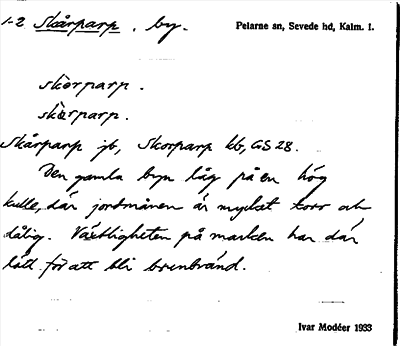 1-2 Skårparp. by. Pelarne sn, Sevede hd, Kalm. l.
skòrparp.
skàrparp.
Skårparp jb, Skorparp kb, GS 28.
Den gamla byn låg på en hög
kulle, där jordmånen är mycket torr och
dålig. Växtligheten på marken har där
lätt för att bli brenbränd.
Ivar Modéer 1933